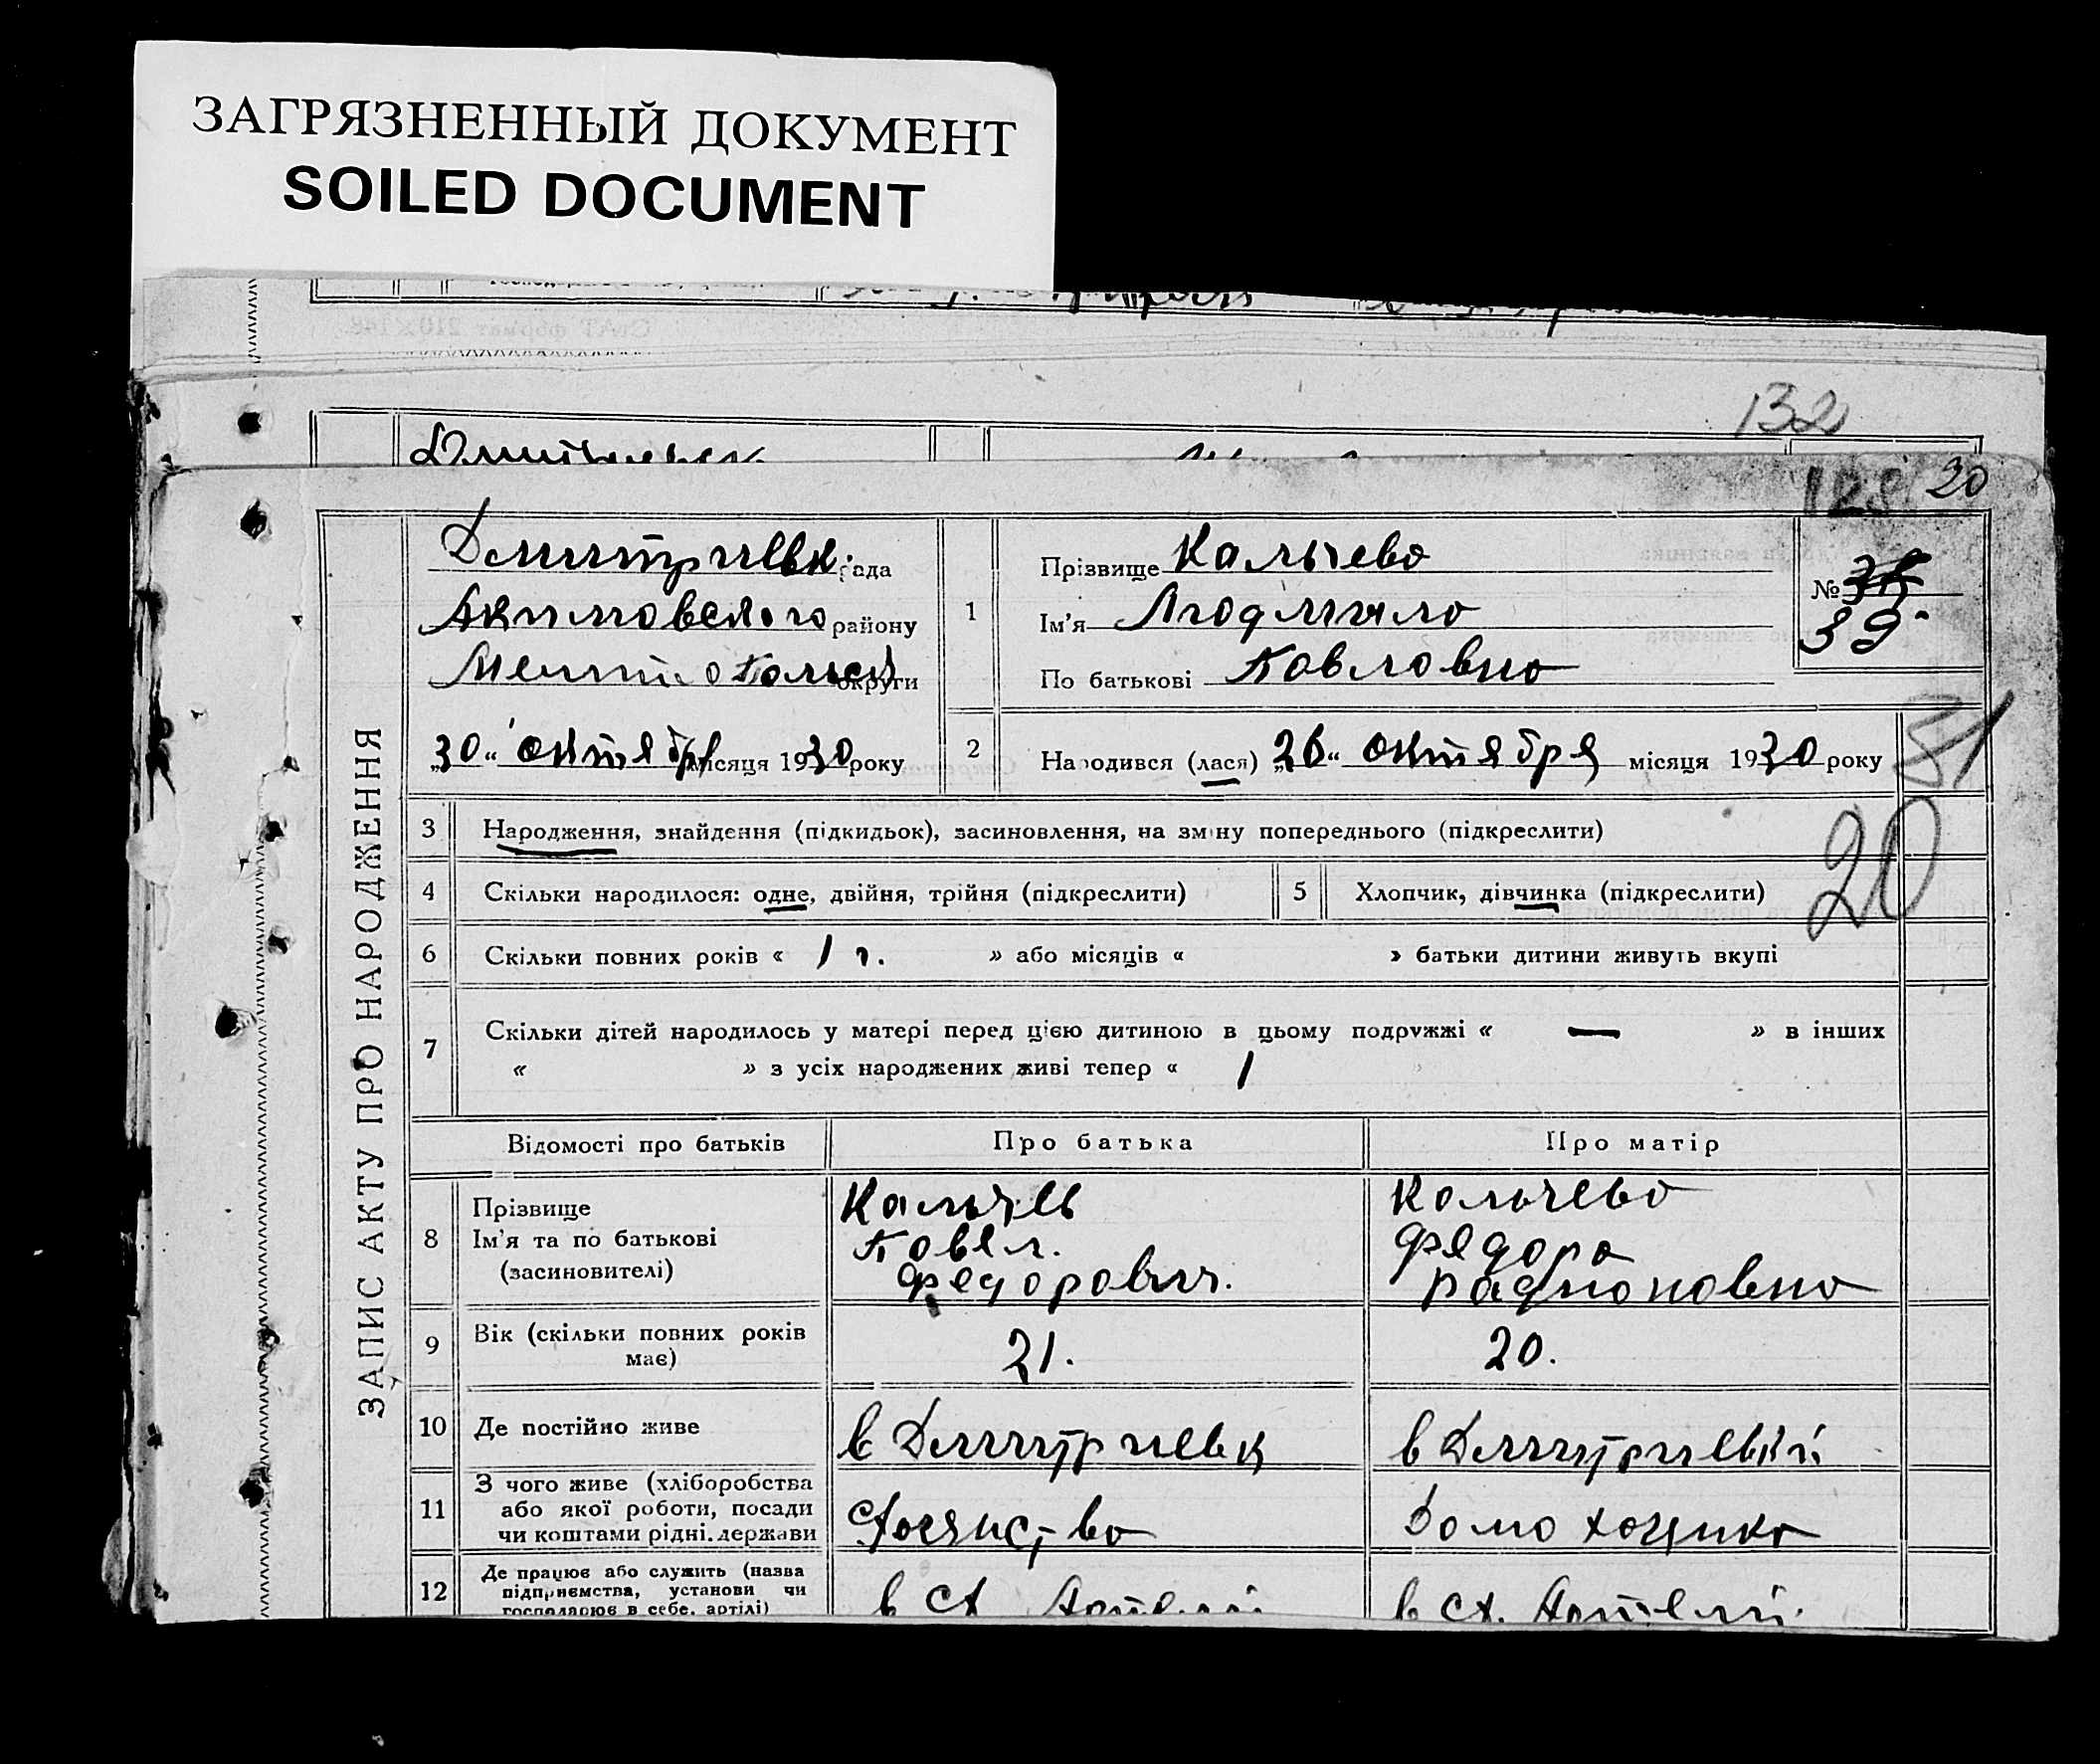 ЗАГРЯЗНЕННЫЙ ДОКУМЕНТ
SOILED DOCUMENT
132
128 20
ЗАПИС АКТУ ПРО НАРОДЖЕННЯ
Дмитриевк. рада
Акимовского району
Мелитопольск округи
„30“ октября місяця 1930 року
1
Прізвище Кальчева
Ім'я Людмила
По батькові Павловна
№
39
2
Народився (лася) „26“ октября місяця 1930 року
31
3 Народження, знайдення (підкидьок), засиновлення, на зміну попереднього (підкреслити)
4 Скільки народилося: одне, двійня, трійня (підкреслити) 5 Хлопчик, дівчинка (підкреслити)
20
6 Скільки повних років « 1 г. » або місяців « » батьки дитини живуть вкупі
7 Скільки дітей народилось у матері перед цією дитиною в цьому подружжі « — » в інших
« » з усіх народжених живі тепер « 1
Відомості про батьків Про батька Про матір
8 Прізвище Кальчев Кальчева
Ім'я та по батькові Павел. Федора
(засиновителі) Федорович. Радионовна
9 Вік (скільки повних років має) 21. 20.
10 Де постійно живе в Дмитриевк в Дмитриевкі
11 З чого живе (хліборобства
або якої роботи, посади
чи коштами рідні. держави
12 Де працює або служить (назва в ст. Артелі в ст. Артелі.
підприємства, установи чи
господарює в себе, артілі)